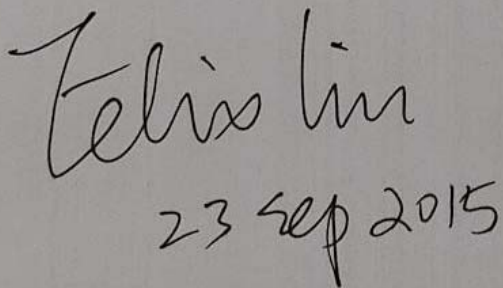 Felix Lin
23 Sep 2015